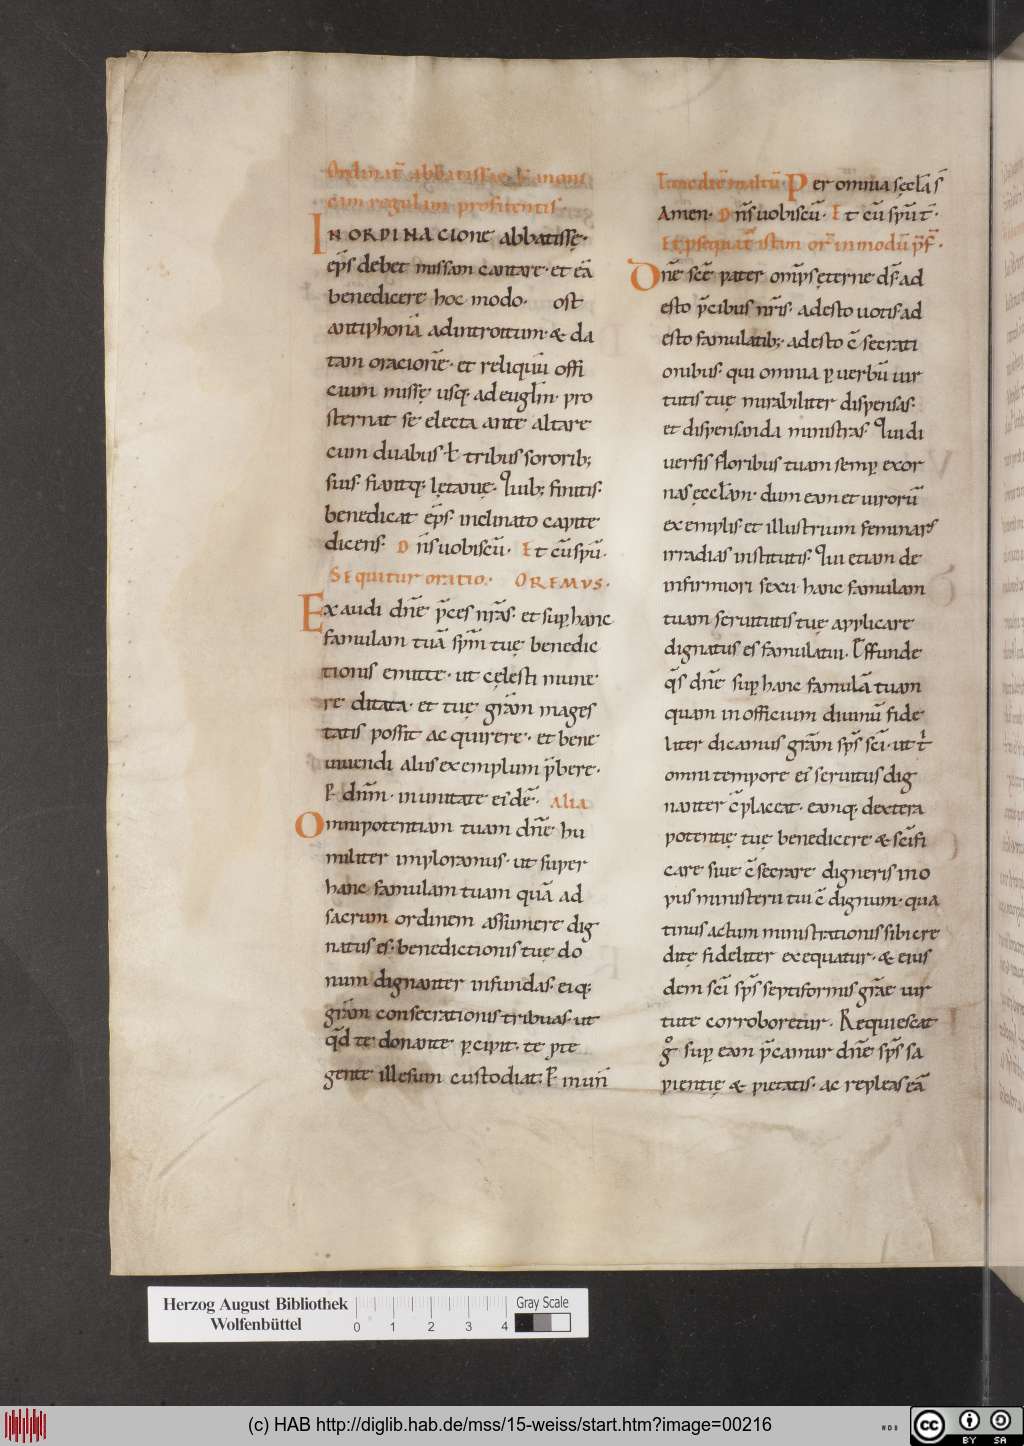 Ordinat̄ abbatissae k̄anoni
cam regulam profitentis
IN ORDINACIONE abbatissę·
ep̄s debet missam cantare· et eā
benedicere hoc modo· post
antiphonā ad introitum· & da
tam oracionē· et reliquū offi
cium missę usq; ad euglīm· pro
sternat se electa ante altare
cum duabus ł tribus sororib;
suis· fiantq; lętanię· Quib; finitis·
benedicat ep̄s· inclinato capite
dicens· Dn̄s uobiscū· Et cū sp̄u·
SEquitur oratio· OREMUS·
Exaudi dn̄e p̄ces nr̄as· et sup̱ hanc
famulam tuā sp̄m tuę benedic
tionis emitte· ut cęlesti mune
re ditata· et tuę grām mages
tatis possit acquirere· et bene
uiuendi aliis exemplum p̄bere·
P̱ dn̄m· in unitate eide͞· Alia
Omnipotentiam tuam dn̄e hu
militer imploramus· ut super
hanc famulam tuam quā ad
sacrum ordinem assumere dig
natus es· benedictionis tuę do
num dignanter infundas· eiq;
grām consecrationis tribuas· ut
qd̄ te donante p̱cipit· te p̱te
gente illesum custodiat; P̱
Per omnia sęcl̄a s̄
Amen· Dn̄s uobiscū· Et cū sp̄u t̄·
Et p̱sequat̄ istam or̄ in modū p̄f̄·
Dn̄e sc̄e pater omp̄s ęterne ds̄ ad
esto p̄cibus nr̄is· adesto uotis ad
esto famulatib;· adesto c̄secrati
onibus· qui omnia p̱ uerbū uir
tutis tuę mirabiliter dispensas·
et dispensanda ministras· Qui di
uersis floribus tuam semp̱ exor
nas ęccl̄am· dum eam et uirorū
exemplis· et illustrium feminarū
irradias institutis· Qui etiam de
infirmiori sexu hanc famulam
tuam seruitutis tuę applicare
dignatus es famulatui· Effunde
q̄s dn̄e sup̱ hanc famulā tuam
quam in officium diuinū fide
liter dicamus grām sp̄s sc̄i· ut t̄
omni tempore ei seruitus dig
nanter c̄placeat· eamq; dextera
potentię tuę benedicere & sc̄ifi
care siue c̄secrare digneris in o
pus ministerii tui c̄dignum· qua
tinus actum ministrationis sibi cre
ditę fideliter exequatur· & eius
dem sc̄i sp̄s septiformis grāe uir
tute corroboretur· Requiescat
go sup̱ eam p̄camur dn̄e sp̄s sa
pientię & pietatis· ac repleas eā
Herzog August Bibliothek
Wolfenbüttel
0 1 2 3 4
Gray Scale
(c) HAB http://diglib.hab.de/mss/15-weiss/start.htm?image=00216
cc BY SA